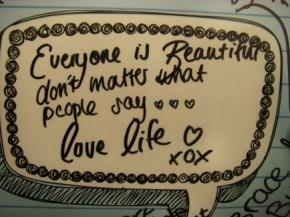 Everyone is Beautiful
don't matter what
people say ...
love life ♡
xox